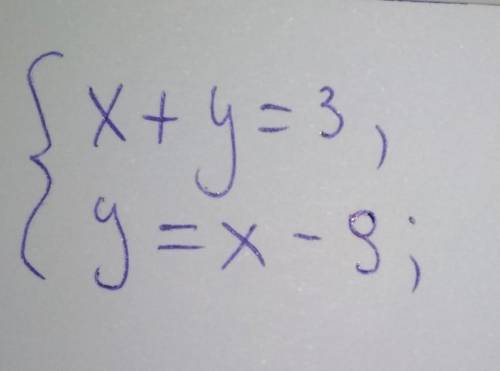 x + y = 3,
y = x - 9;